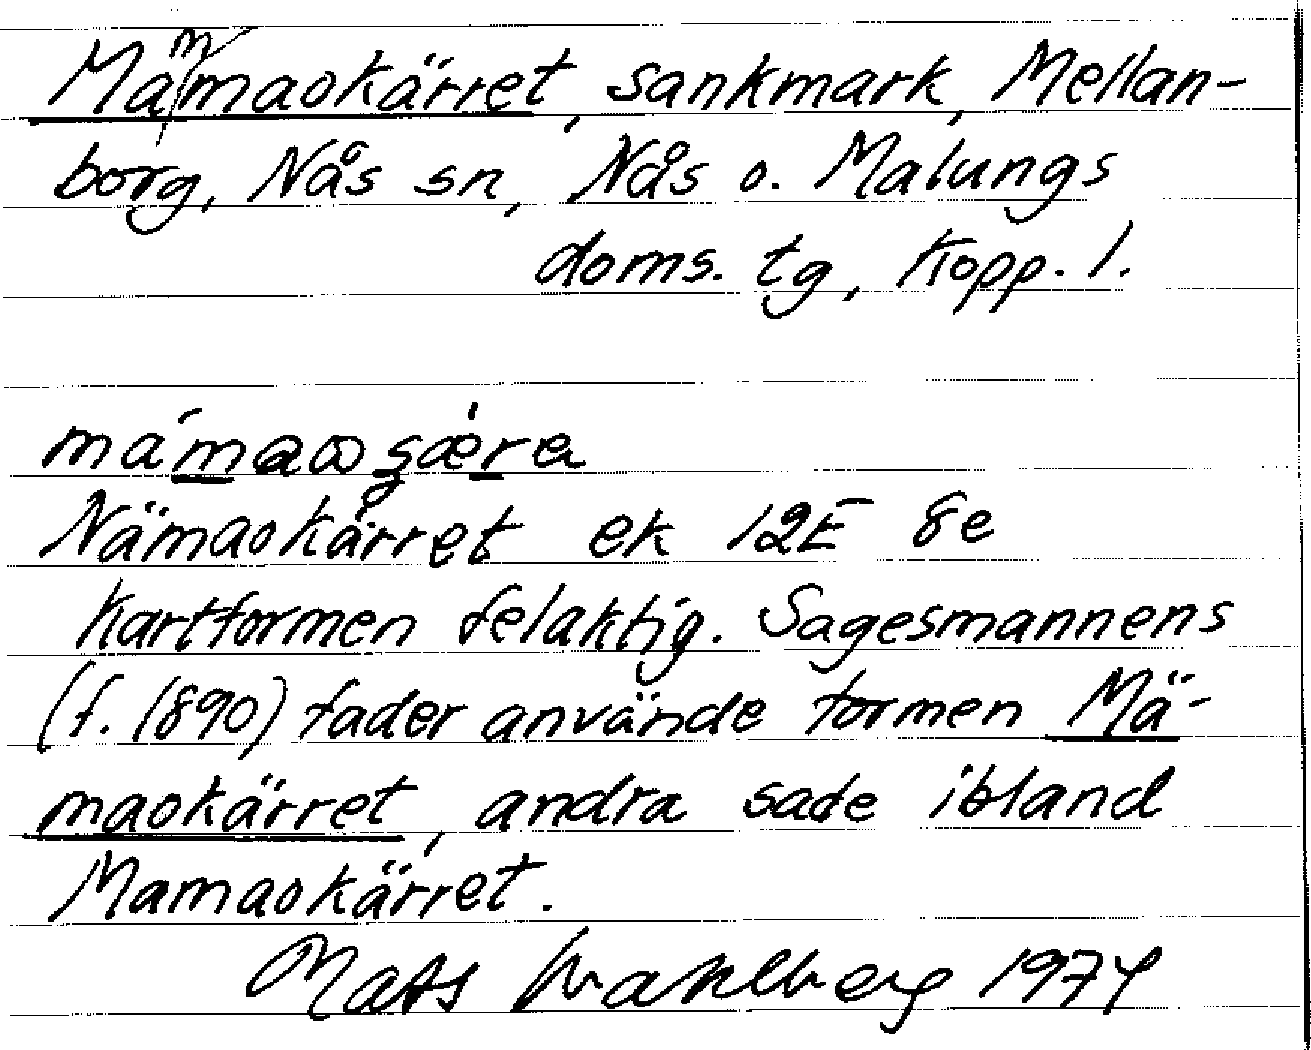 Mämmaokärret, sankmark, Mellan-
borg, Nås sn, Nås o. Malungs
doms. tg, Kopp. l.
Nämaokärret ek 12E 8e
Kartformen felaktig. Sagesmannens
(f. 1890) fader använde formen Mä-
maokärret, andra sade ibland
Mamaokärret.
Mats Wahlberg 1974